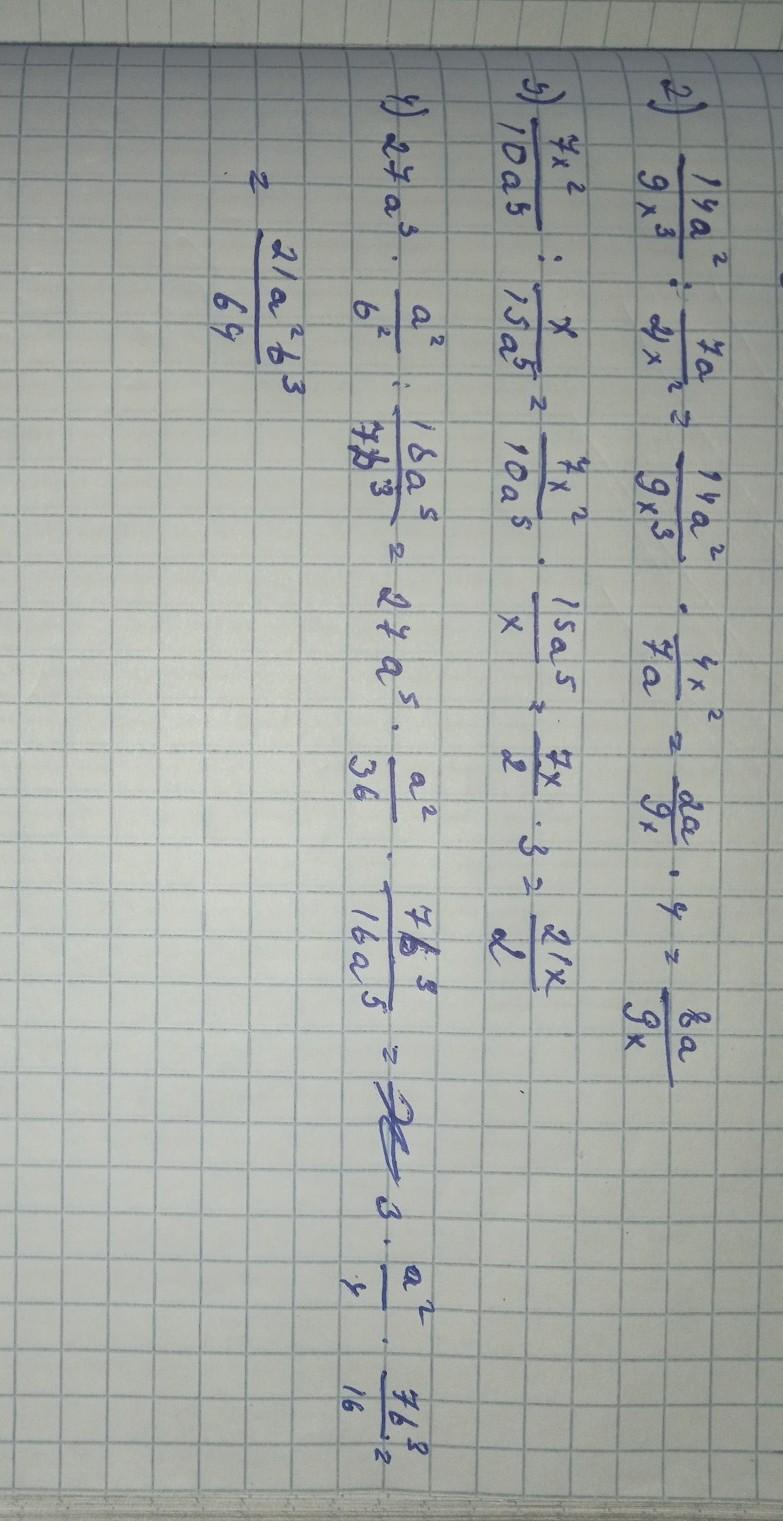 2) 14a²/9x³ : 7a/4x² = 14a²/9x³ · 4x²/7a = 2a/9x · 4 = 8a/9x
3) 7x²/10a⁵ : x/15a⁵ = 7x²/10a⁵ · 15a⁵/x = 7x/2 · 3 = 21x/2
4) 27a³ · a²/b² : 16a⁵/7b³ = 27a⁵ · a²/36 · 7b³/16a⁵ = 3 · a²/4 · 7b³/16 =
= 21a²b³/64